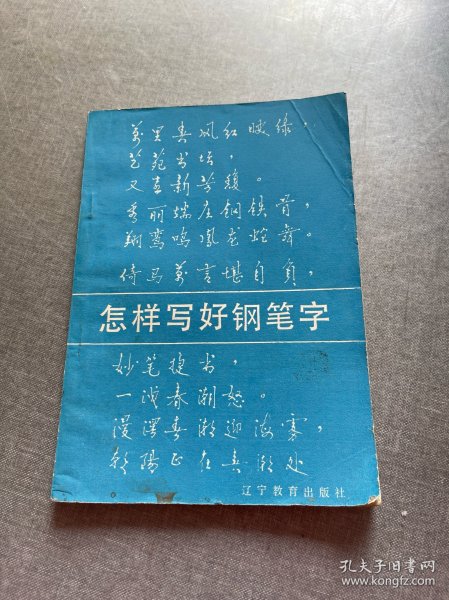 萬里春风红 绿，
艺苑书坛，
又 新芳馥。
秀丽端庄钢铁骨，
翔鸾鸣凤龙蛇舞。
倚马萬言堪自负，
怎样写好钢笔字
妙笔捷书，
一 春潮怒。
漫 春潮迎海雾，
朝陽正在春潮处
辽宁教育出版社
孔夫子旧书网
www.kongfz.com